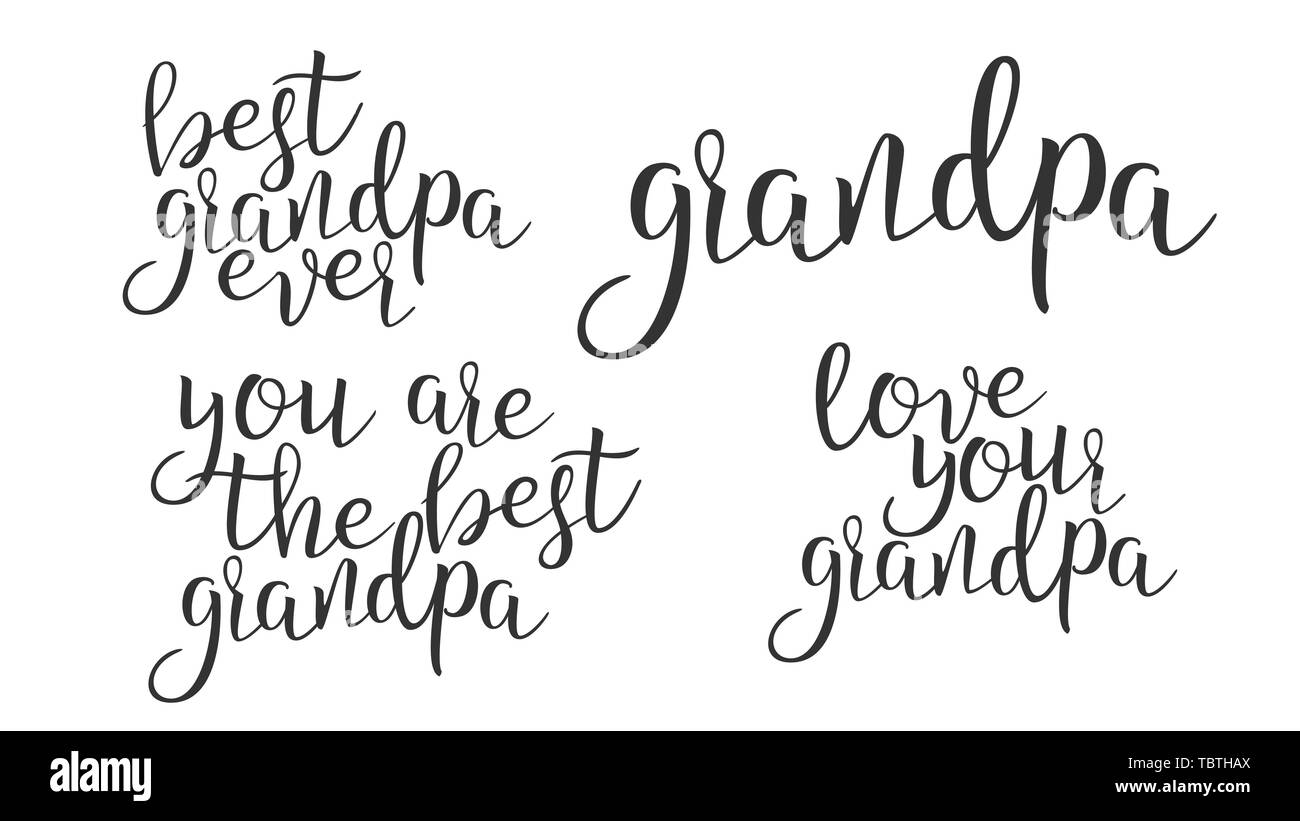 best
grandpa
ever
grandpa
you are
the best
grandpa
love
your
grandpa
alamy
Image ID: TBTHAX
www.alamy.com